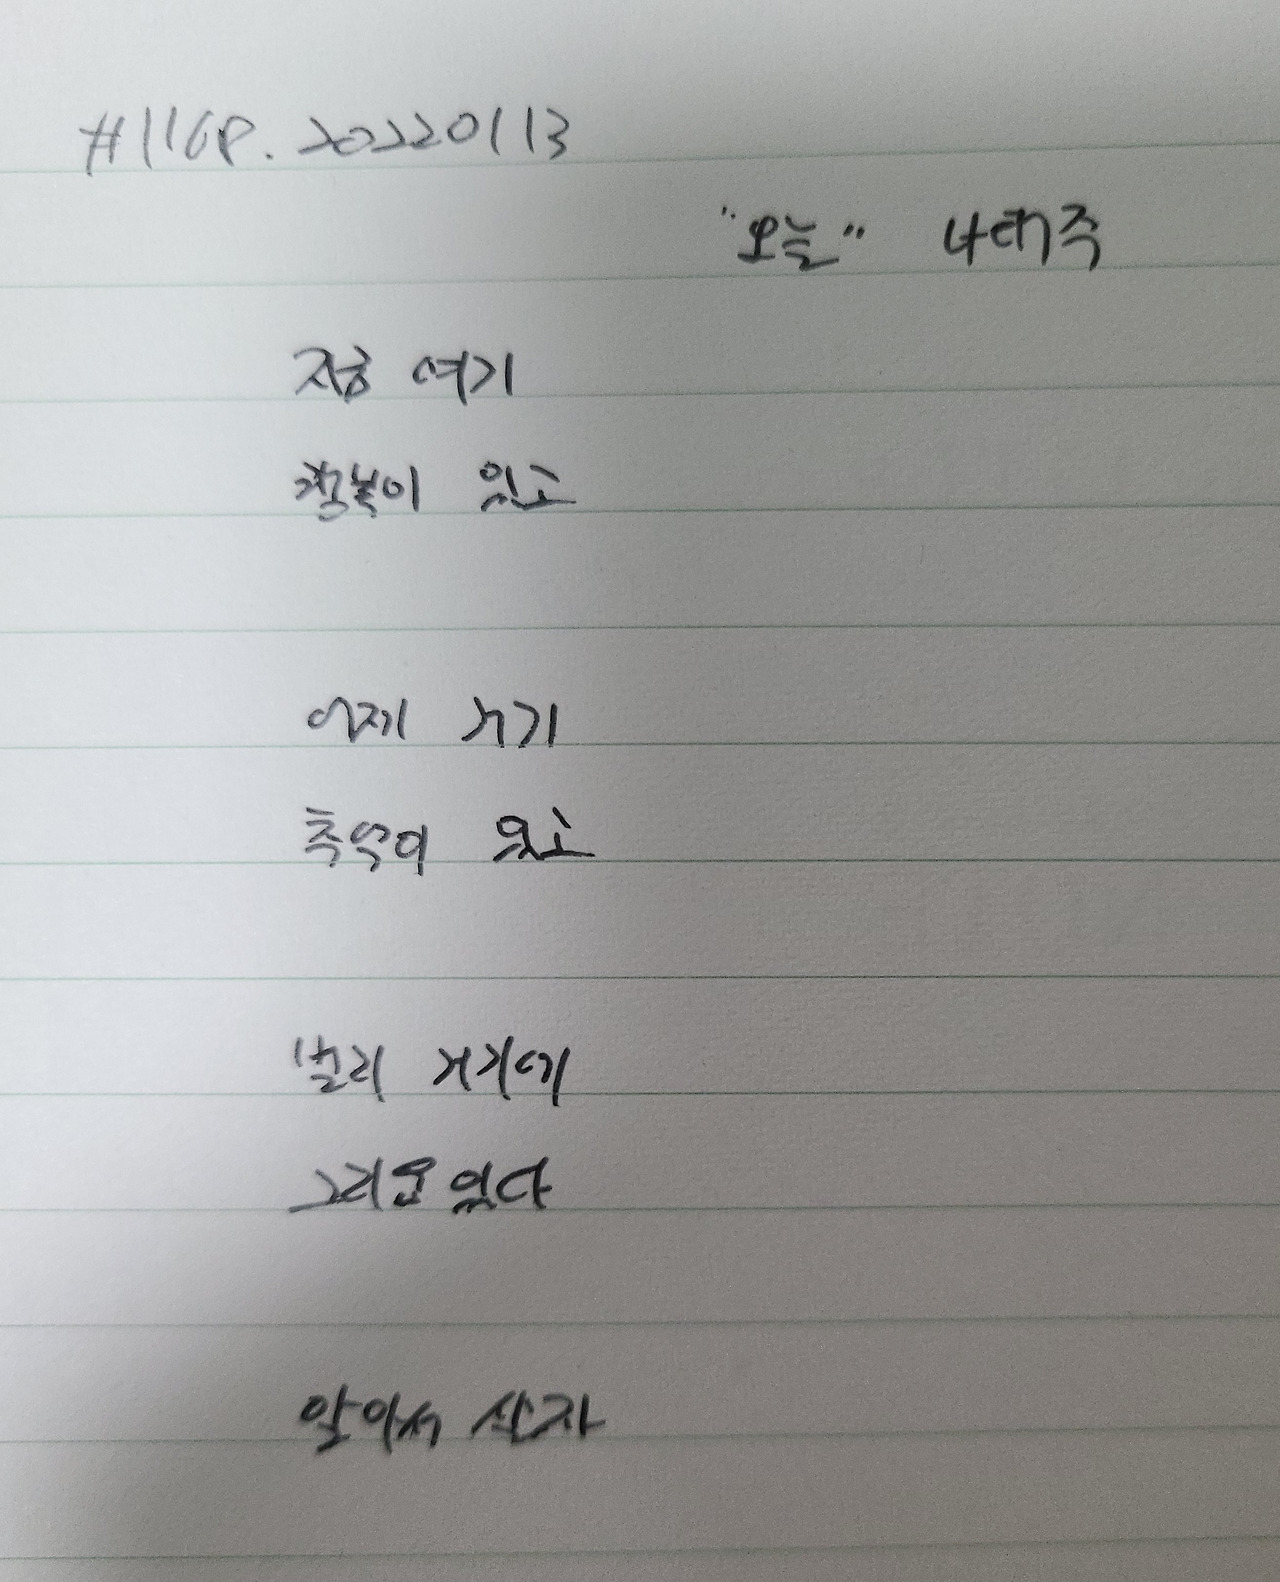 #1168. 20220113
"오늘" 나태주
지금 여기
행복이 있고
어제 거기
추억이 있고
멀리 거기에
그리움 있다
알아서 살자